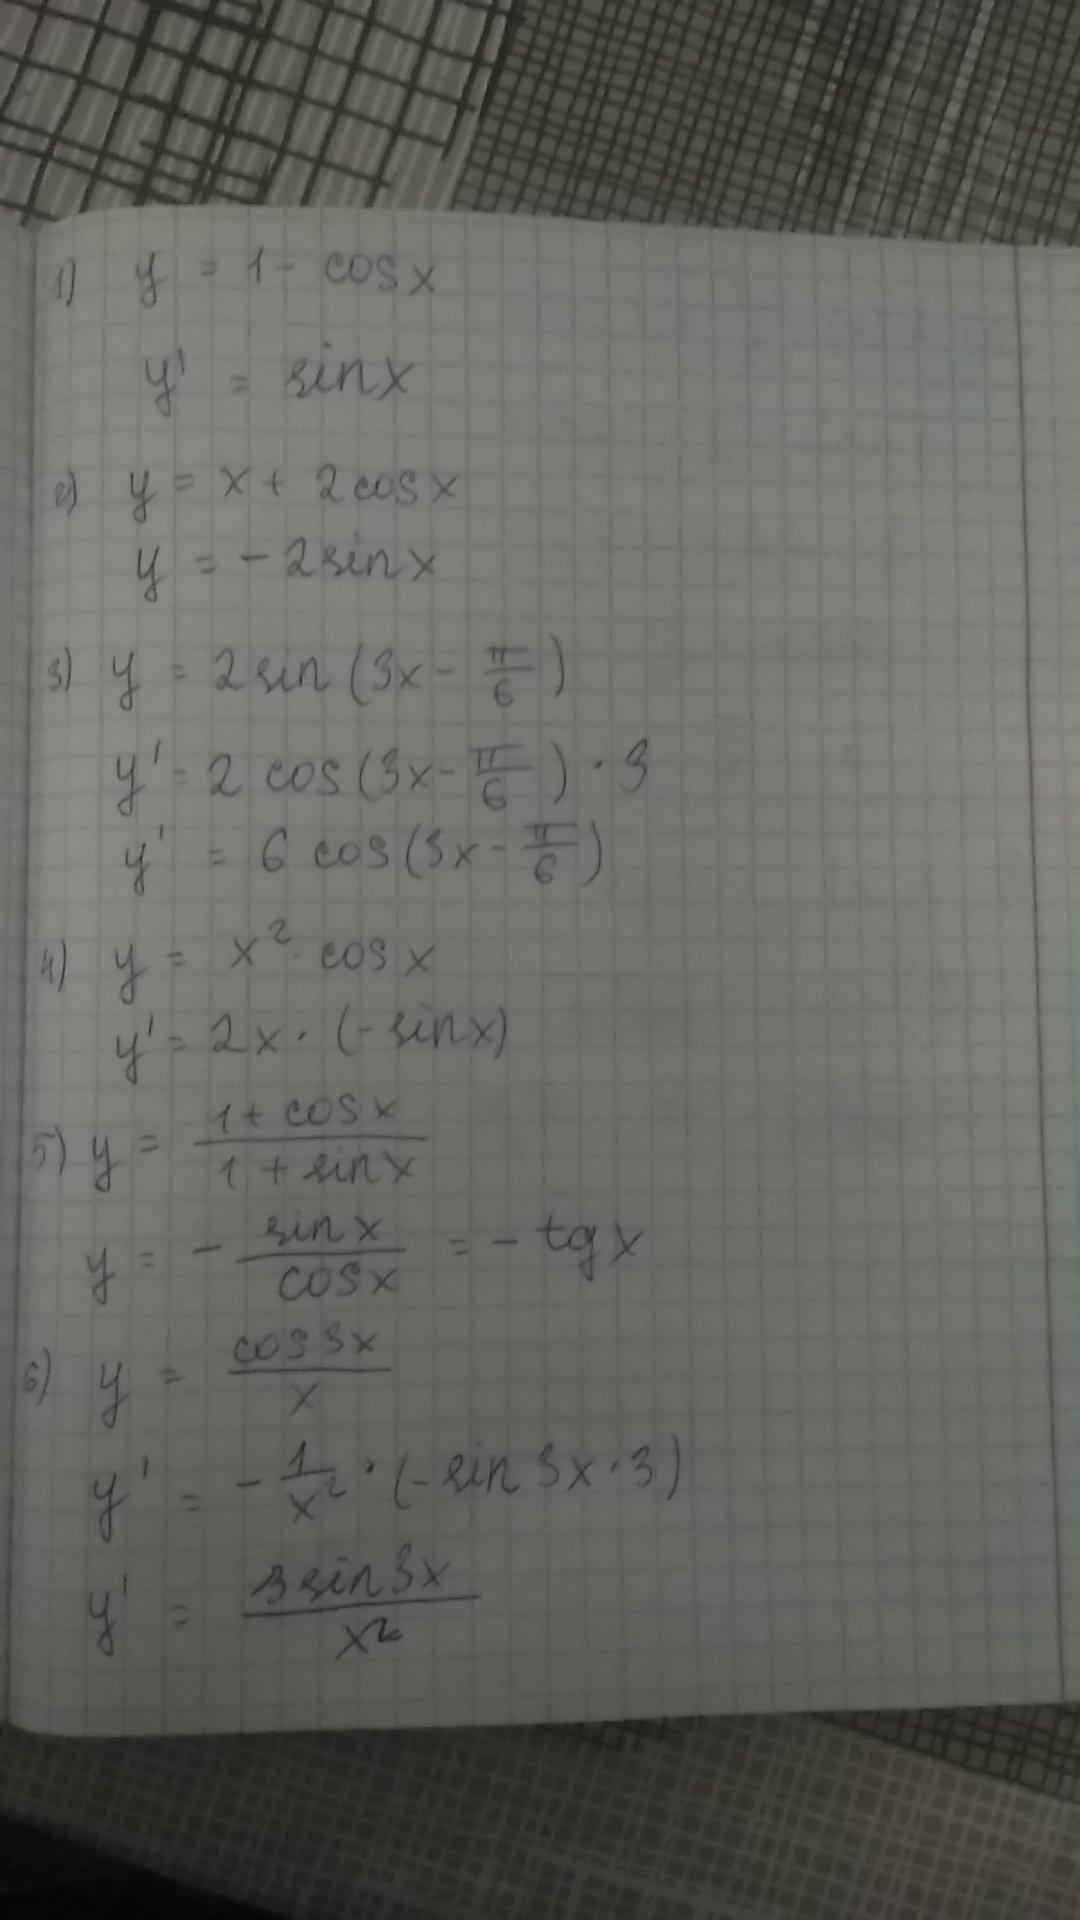 1) y = 1 - cos x
y' = sin x
2) y = x + 2 cos x
y = - 2 sin x
3) y = 2 sin (3x - π/6)
y' = 2 cos (3x - π/6) · 3
y' = 6 cos (3x - π/6)
4) y = x² · cos x
y' = 2x · (- sin x)
5) y = (1 + cos x)/(1 + sin x)
y = - sin x/cos x = - tg x
6) y = cos 3x/x
y' = - 1/x² · (- sin 3x · 3)
y' = 3 sin 3x/x²